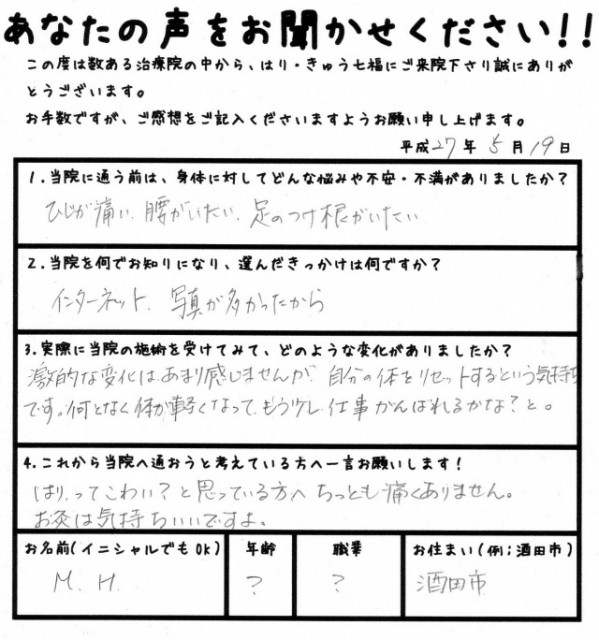 あなたの声をお聞かせください!!
この度は数ある治療院の中から、はり・きゅう七福にご来院下さり誠にありが
とうございます。
お手数ですが、ご感想をご記入くださいますようお願い申し上げます。
平成27年5月19日
1.当院に通う前は、身体に対してどんな悩みや不安・不満がありましたか?
ひじが痛い、腰がいたい、足のつけ根がいたい
2.当院を何でお知りになり、選んだきっかけは何ですか?
インターネット、写真が多かったから
3.実際に当院の施術を受けてみて、どのような変化がありましたか?
激的な変化はあまり感じませんが、自分の体をリセットするという気持ち
です。何となく体が軽くなって、もう少し仕事がんばれるかな?と。
4.これから当院へ通おうと考えている方へ一言お願いします!
はり、ってこわい?と思っている方へ ちっとも痛くありません。
お灸は気持ちいいですよ。
お名前(イニシャルでもOK) 年齢 職業 お住まい(例;酒田市)
M.H. ? ? 酒田市